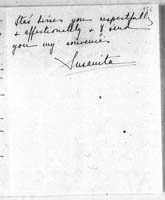 kisses you respectfully
& affectionately & I send
you my souvenirs
Susanita